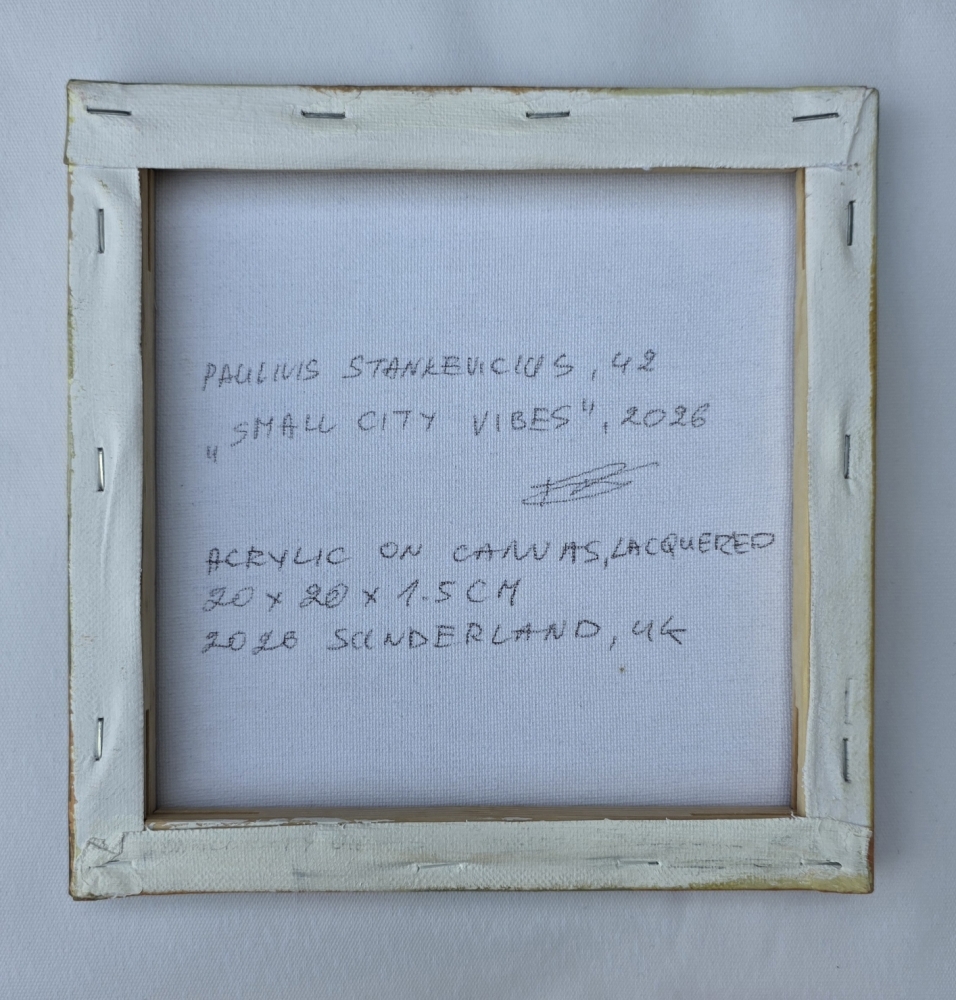 PAULIUS STANKEVICIUS, 42
„SMALL CITY VIBES", 2026
ACRYLIC ON CANVAS, LACQUERED
20 x 20 x 1.5 CM
2026 SUNDERLAND, UK